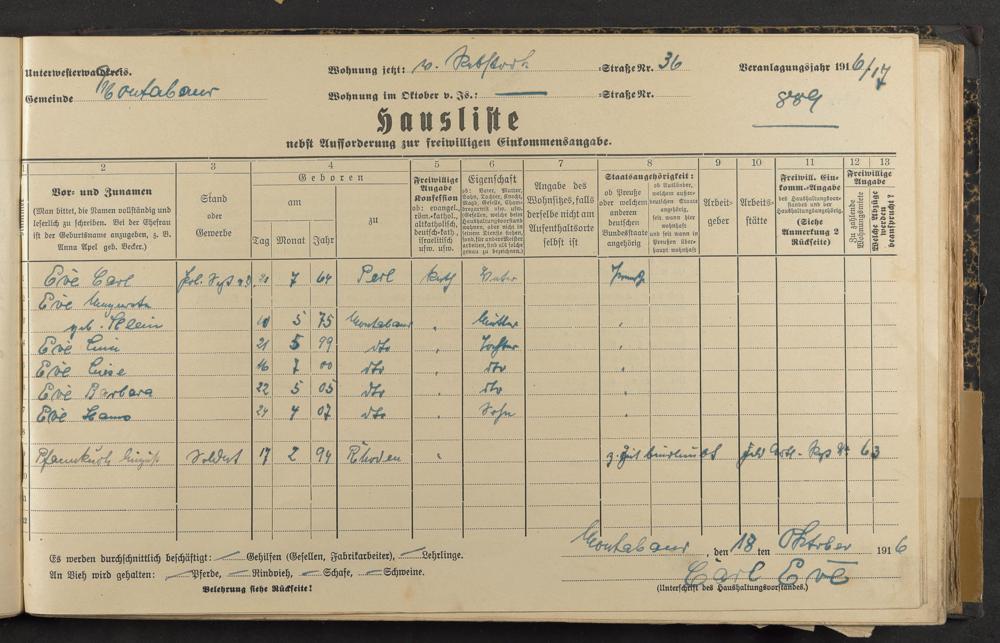 Unterwesterwaldkreis.
Wohnung jetzt: v.
Straße Nr. 36
Veranlagungsjahr 1916/17
Gemeinde Montabaur
Wohnung im Oktober v. Js.: —
Straße Nr.
889
Hausliste
nebst Aufforderung zur freiwilligen Einkommensangabe.
1 2 3 4 5 6 7 8 9 10 11 12 13
Vor- und Zunamen
(Man bittet, die Namen vollständig und
leserlich zu schreiben. Bei der Ehefrau
ist der Geburtsname anzugeben, z. B.
Anna Apel geb. Becker.)
Stand
oder
Gewerbe
Geboren
am
zu
Tag Monat Jahr
Freiwillige
Angabe
Konfession
ob: evangel.,
röm.-kathol.,
altkatholisch,
deutsch-kath.,
israelitisch
usw. usw.
Eigenschaft
ob: Vater, Mutter,
Sohn, Tochter, Knecht,
Magd, Geselle,
Angabe des
Wohnsitzes, falls
derselbe nicht am
Aufenthaltsorte
selbst ist
Staatsangehörigkeit:
ob Preuße
oder welchem
anderen
deutschen
Bundesstaate
angehörig
ob Ausländer,
welchem außer-
deutschen Staate
angehörig,
seit wann hier
wohnhaft und
seit wann in
Preußen über-
haupt wohnhaft
Arbeit-
geber
Arbeits-
stätte
Freiwill. Ein-
komm.-Angabe
des Haushaltungsvor-
standes und der
Haushaltungsangehörig.
(Siehe
Anmerkung 2
Rückseite)
Freiwillige
Angabe
Zu zahlende
Wohnungsmiete
Welche Abzüge
werden
beansprucht?
Evé Carl 20 7 64 Perl kath Vater Preuße
Evé Augusta
geb. Klein 10 5 75 Montabaur " Mutter "
Evé 21 5 99 dto " Tochter "
Evé Liese 16 7 00 dto " dto "
Evé Barbara 22 5 05 dto " dto "
Evé Hans 24 4 07 dto " Sohn "
Pfannkuch August Soldat 17 2 94 Rhoden " z. Zeit 63
Es werden durchschnittlich beschäftigt: — Gehilfen (Gesellen, Fabrikarbeiter), — Lehrlinge.
An Vieh wird gehalten: — Pferde, — Rindvieh, — Schafe, — Schweine.
Belehrung siehe Rückseite!
Montabaur, den 18ten Oktober 1916
Carl Evé
(Unterschrift des Haushaltungsvorstandes.)